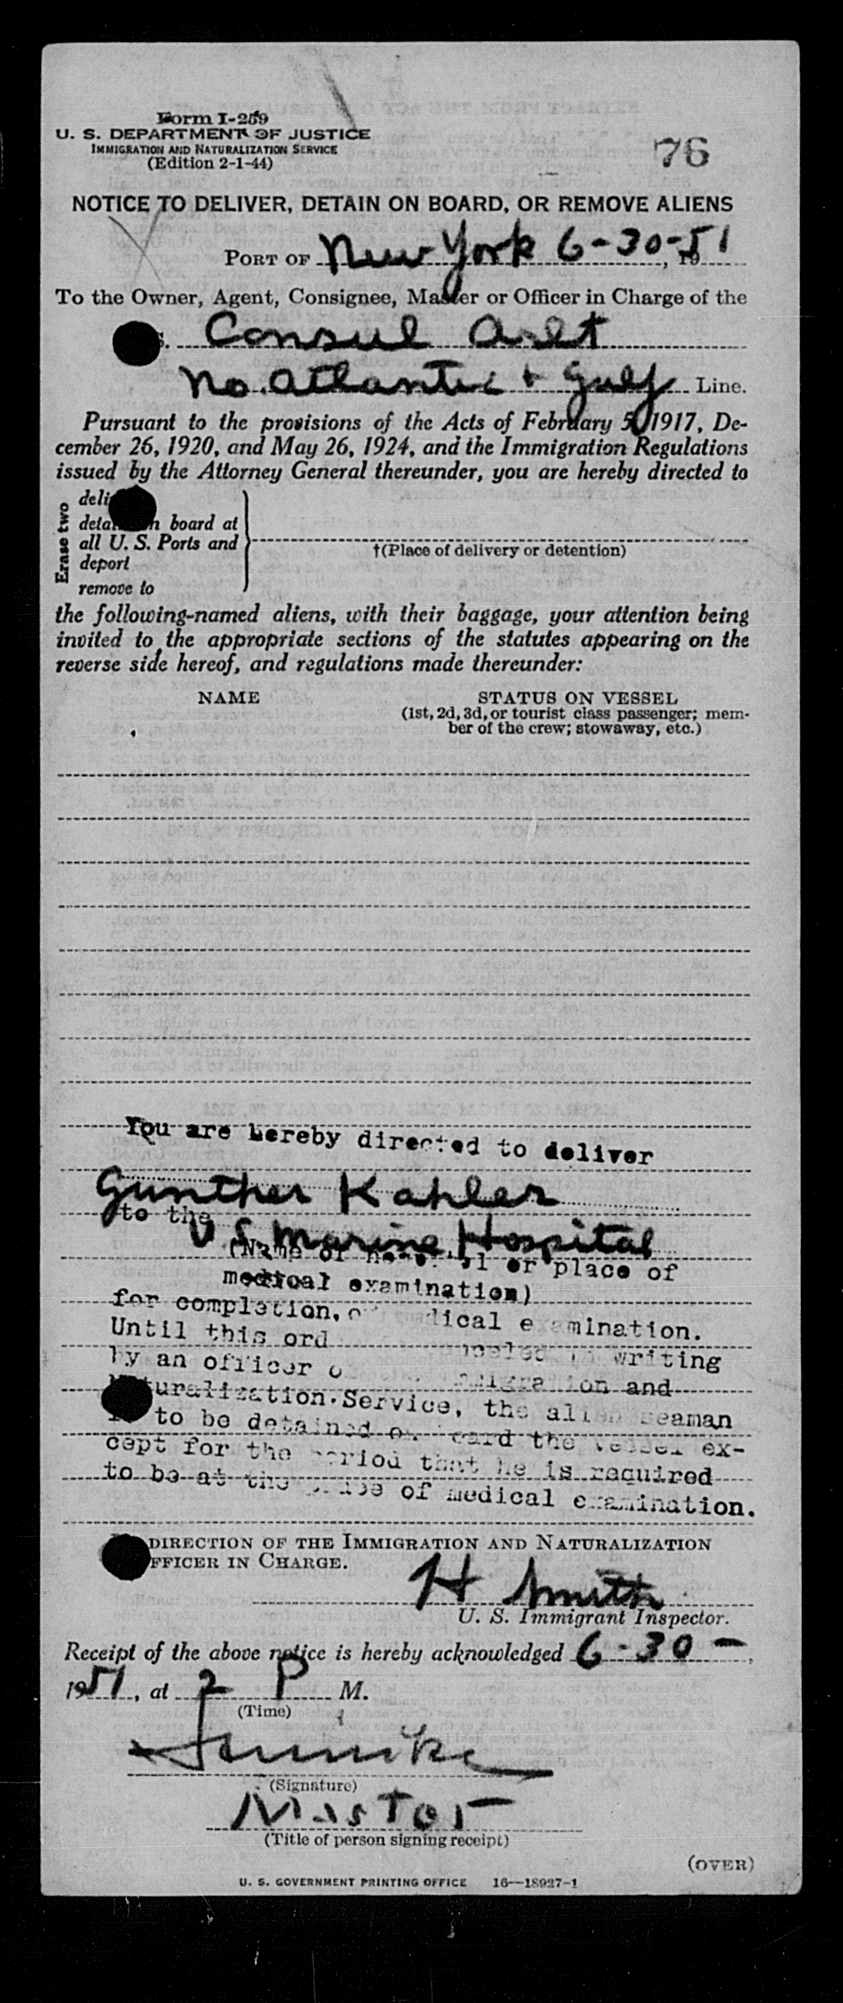 Form I-259
U. S. DEPARTMENT OF JUSTICE
IMMIGRATION AND NATURALIZATION SERVICE
(Edition 2-1-44)
76
NOTICE TO DELIVER, DETAIN ON BOARD, OR REMOVE ALIENS
PORT OF New York 6-30-51, 19
To the Owner, Agent, Consignee, Master or Officer in Charge of the
S. Consul Arlt
No. Atlantic + Gulf Line.
Pursuant to the provisions of the Acts of February 5, 1917, De-
cember 26, 1920, and May 26, 1924, and the Immigration Regulations
issued by the Attorney General thereunder, you are hereby directed to
Erase two
deli
detain on board at
all U. S. Ports and
deport
remove to
†(Place of delivery or detention)
the following-named aliens, with their baggage, your attention being
invited to the appropriate sections of the statutes appearing on the
reverse side hereof, and regulations made thereunder:
NAME STATUS ON VESSEL
(1st, 2d, 3d, or tourist class passenger; mem-
ber of the crew; stowaway, etc.)
You are hereby directed to deliver
Gunther Kahler
to the
U S Marine Hospital
(Name of hospital or place of
medical examination)
for completion, of medical examination.
Until this ord canceled in writing
by an officer o Immigration and
Naturalization Service, the alien seaman
is to be detained on board the vessel ex-
cept for the period that he is required
to be at the place of medical examination.
DIRECTION OF THE IMMIGRATION AND NATURALIZATION
OFFICER IN CHARGE.
H Smith
U. S. Immigrant Inspector.
Receipt of the above notice is hereby acknowledged 6-30-,
1951, at 2 P M.
(Time)
(Signature)
Master
(Title of person signing receipt)
(OVER)
U. S. GOVERNMENT PRINTING OFFICE 16—18927-1